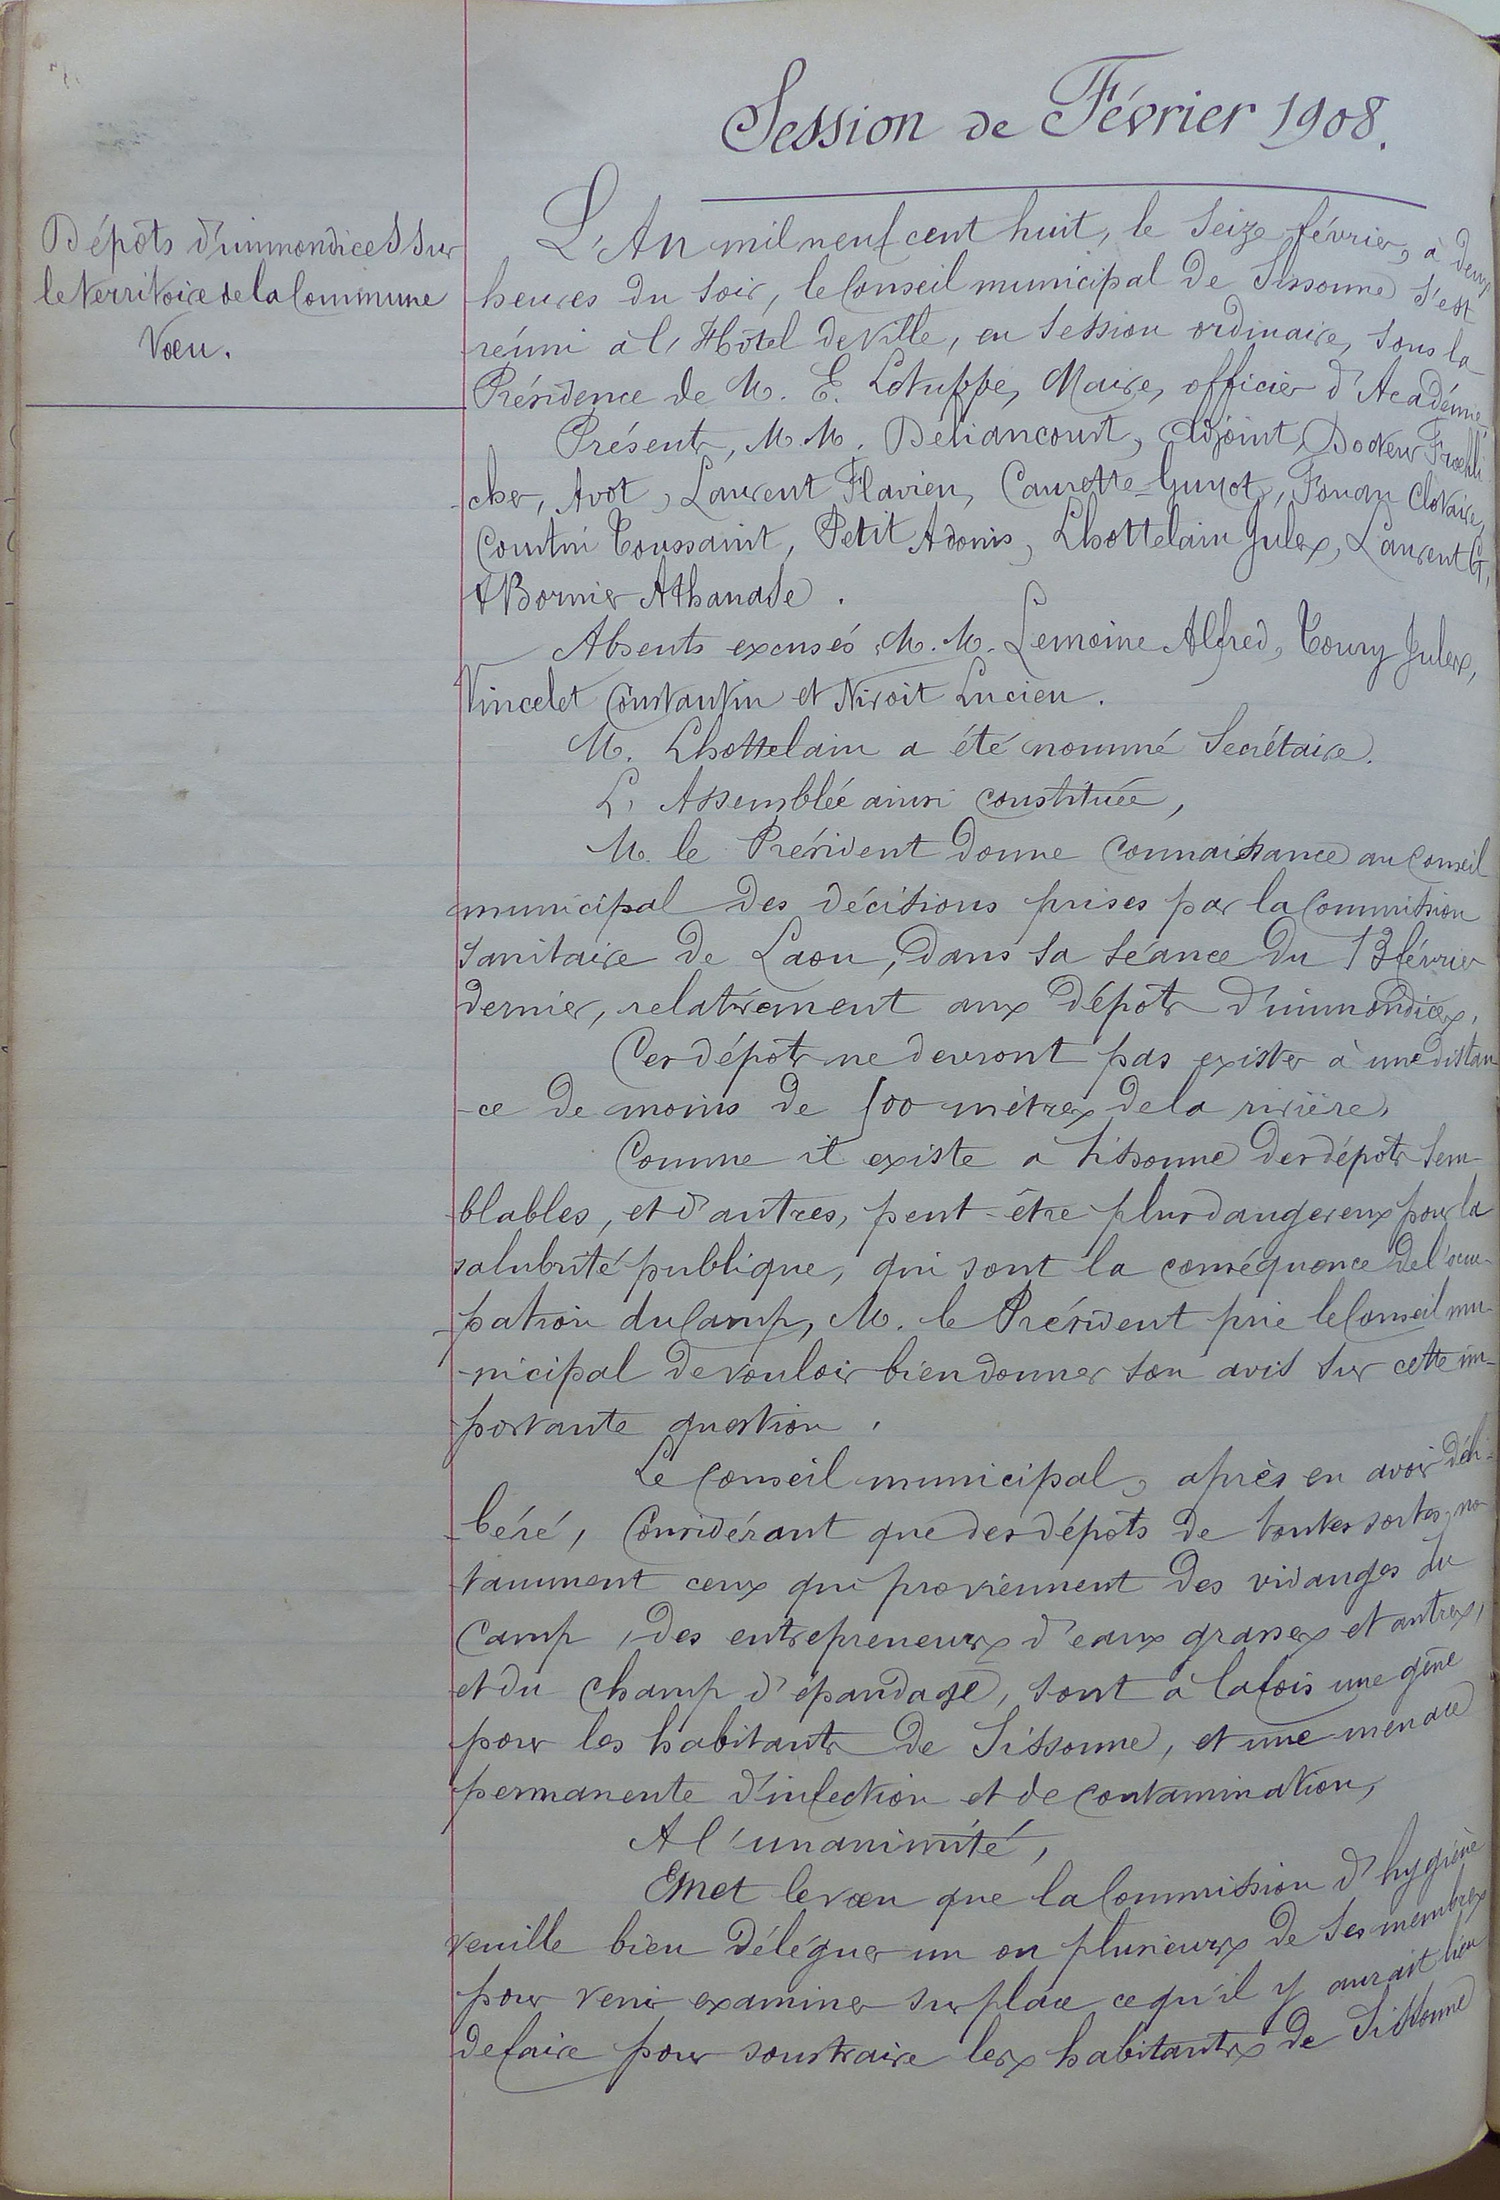 Session de Février 1908.
Dépôts d'immondices sur
le territoire de la Commune
Vœu.
L'An mil neuf cent huit, le seize février, à deux
heures du soir, le Conseil municipal de Sissonne s'est
réuni à l'Hôtel de Ville, en session ordinaire, sous la
Présidence de M. E. Lotuppe, Maire, officier d'Académie
Présents, M.M. Deliancourt, Adjoint, Docteur Froehli
cher, Avot, Laurent Flavien, Caurette-Guyot, Fouan Clotaire,
Courtin Toussaint, Petit Adonis, Lhottelain Jules, Laurent G,
& Bornier Athanase.
Absents excusés M.M. Lemoine Alfred, Toury Jules,
Vincelet Constantin et Niroit Lucien.
M. Lhottelain a été nommé Secrétaire.
L'Assemblée ainsi constituée,
M. le Président donne connaissance au Conseil
municipal des décisions prises par la Commission
sanitaire de Laon, dans sa séance du 13 février
dernier, relativement aux dépôts d'immondices.
Ces dépôts ne devront pas exister à une distan
-ce de moins de 500 mètres de la rivière.
Comme il existe a Sissonne des dépôts sem
blables, et d'autres, peut-être plus dangereux pour la
salubrité publique, qui sont la conséquence de l'occu-
-pation du Camp, M. le Président prie le Conseil mu-
-nicipal de vouloir bien donner son avis sur cette im-
portante question.
Le Conseil municipal, après en avoir déli-
-béré, Considérant que des dépôts de toutes sortes, no
tamment ceux qui proviennent des vidanges du
Camp, des entrepreneurs d'eaux grasses et autres,
et du champ d'épandage, sont à la fois une gêne
pour les habitants de Sissonne, et une menace
permanente d'infection et de contamination,
A l'unanimité,
Emet le vœu que la Commission d'hygiène
veuille bien déléguer un ou plusieurs de ses membres
pour venir examiner sur place ce qu'il y aurait lieu
de faire pour soustraire les habitants de Sissonne